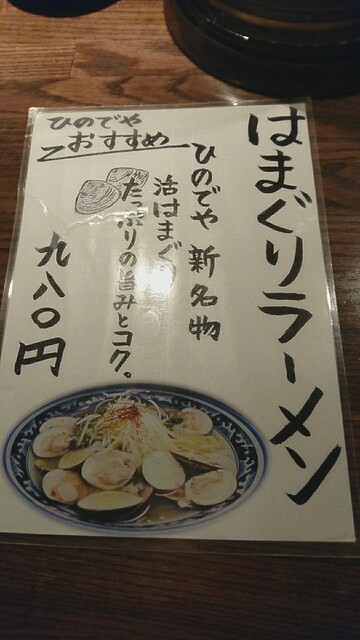 はまぐりラーメン
ひのでや 新名物
活はまぐり
たっぷりの旨みとコク。
ひのでや
おすすめ
九八〇円